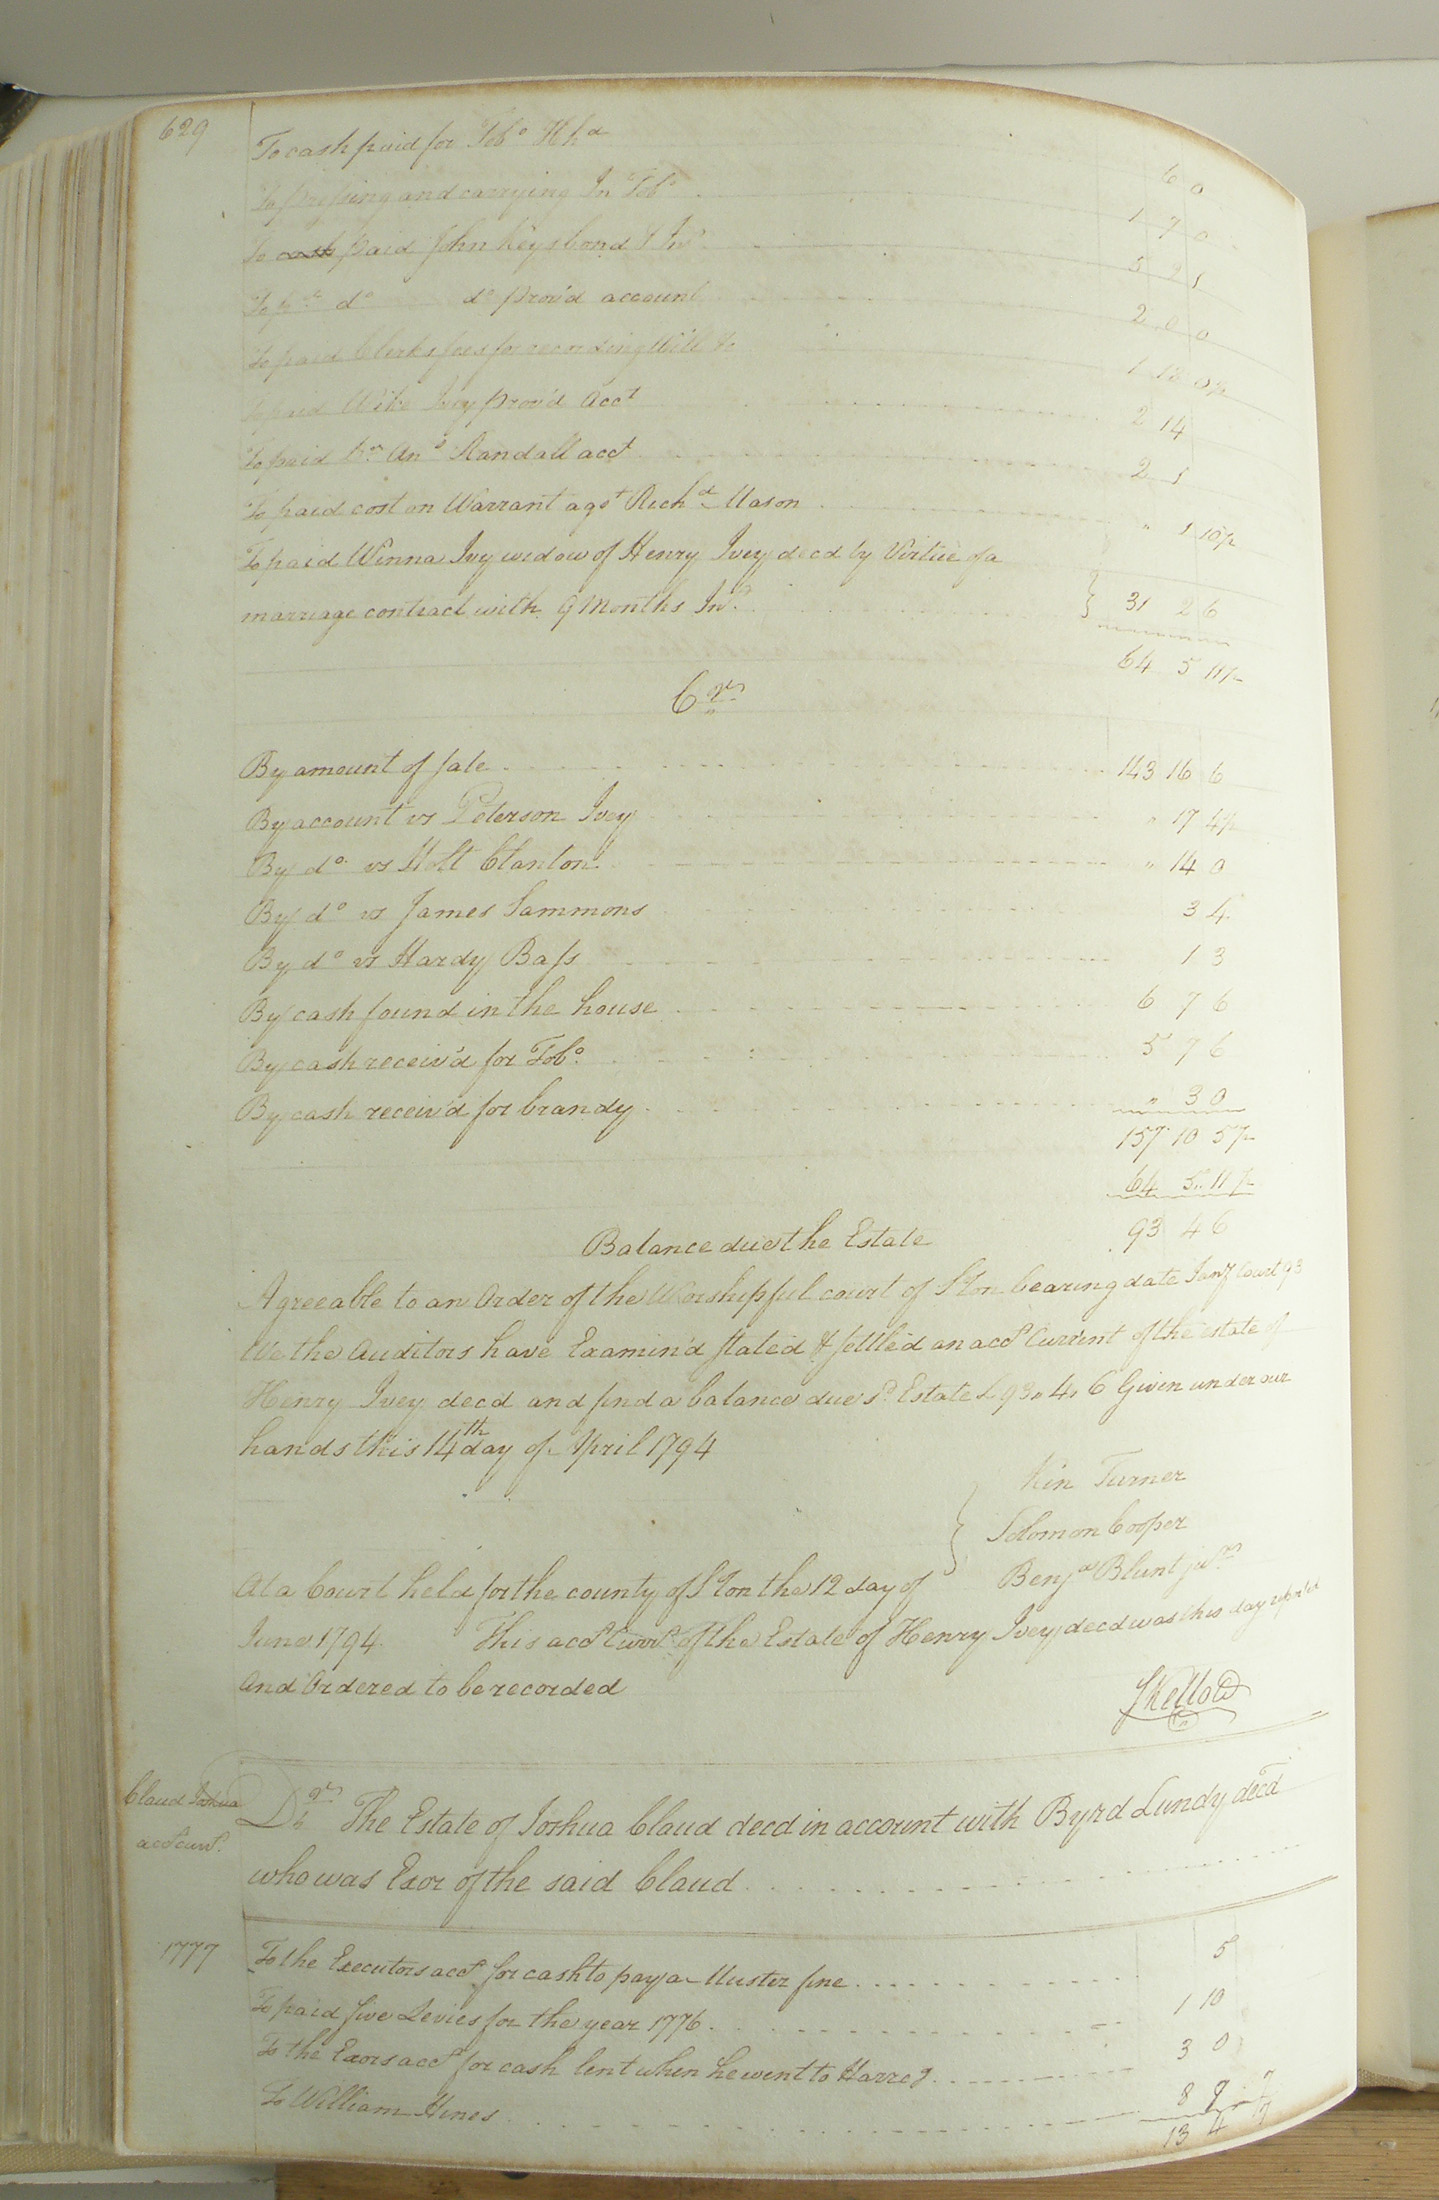 629
To cash paid for Tobo Hhd 6 0
To pressing and carrying In Tobo 1 7 0
To cash paid John Keys bond & Ins 5 2 1
To pd do do prov'd account 2 0 0
To paid Clerks fees for recording Will &c
To paid Wike Ivey prov'd Acct 2 14
To paid Randall acct 2 1
To paid cost on Warrant agst Richd Mason " 1 10½
To paid Winna Ivy widow of Henry Ivey decd by Virtue of a
marriage contract with 9 Months Ins } 31 2 6
64 5 11½
Crs
By amount of sale 143 16 6
By account vs Peterson Ivey " 17 4½
By do vs Holt Clanton " 14 0
By do vs James Sammons 3 4
By do vs Hardy Bass 1 3
By cash found in the house 6 7 6
By cash receiv'd for Tobo 5 7 6
By cash receiv'd for brandy " 3 0
157 10 5½
64 5 11½
Balance due the Estate 93 4 6
Agreeable to an Order of the Worshipful court of SHon bearing date Jany Court 93
We the Auditors have Examin'd stated & settled an acct Current of the estate of
Henry Ivey decd and find a balance due sd Estate £93 " 4 " 6 Given under our
hands this 14th day of April 1794
Kin Turner
Solomon Cooper
Benja Blunt junr
At a Court held for the county of SHon the 12 day of
June 1794. This acct Curr of the Estate of Henry Ivey decd was this day
And Ordered to be recorded
SKello
Claud Joshua
acct curt
Dr The Estate of Joshua Claud decd in account with Byrd Lundy decd
who was Exor of the said Claud
1777 To the Executors acct for cash to pay a Muster fine 5
To paid five Levies for the year 1776 1 10
To the Exors acct for cash lent when he went to 3 0
To William Hines 8 9 7
13 4 7